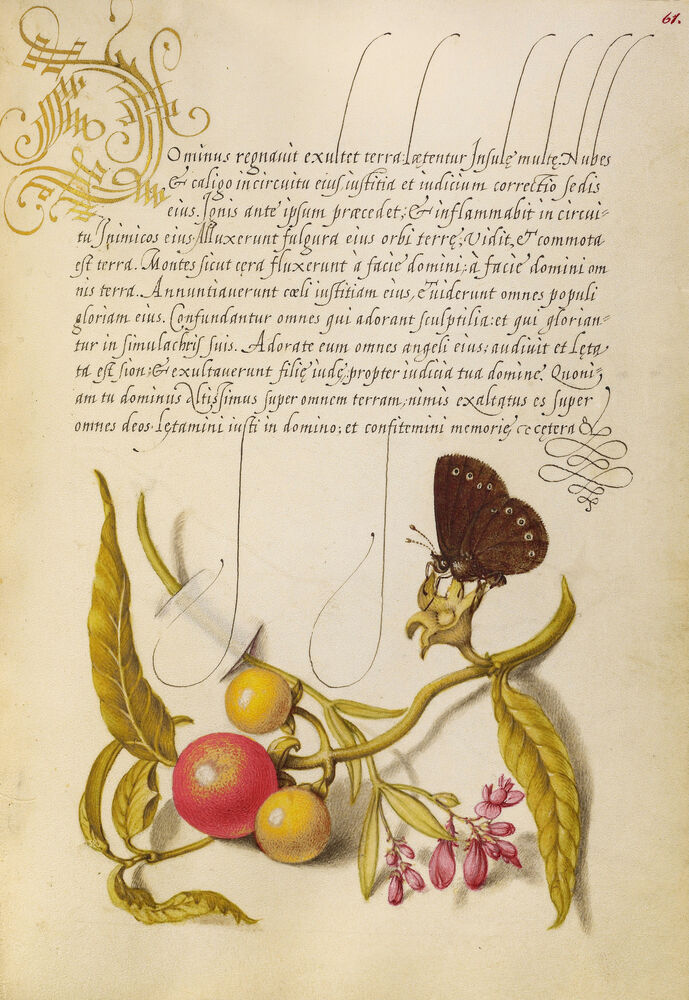 61.
Dominus regnauit exultet terra: lætentur Insulę multę. Nubes
& caligo in circuitu eius iustitia et iudicium correctio sedis
eius. Ignis ante ipsum præcedet; & inflammabit in circui-
tu Inimicos eius Alluxerunt fulgura eius orbi terrę; Vidit, & commota
est terra. Montes sicut cęra fluxerunt à facie domini; à facie domini om
nis terra. Annuntiauerunt cœli iustitiam eius, & uiderunt omnes populi
gloriam eius. Confundantur omnes qui adorant sculptilia: et qui glorian-
tur in simulachris suis. Adorate eum omnes angeli eius; audiuit et lęta
ta est sion; & exultauerunt filię iudę, propter iudicia tua domine. Quoni-
am tu dominus Altissimus super omnem terram, nimis exaltatus es super
omnes deos. Lętamini iusti in domino; et confitemini memorię &cętera